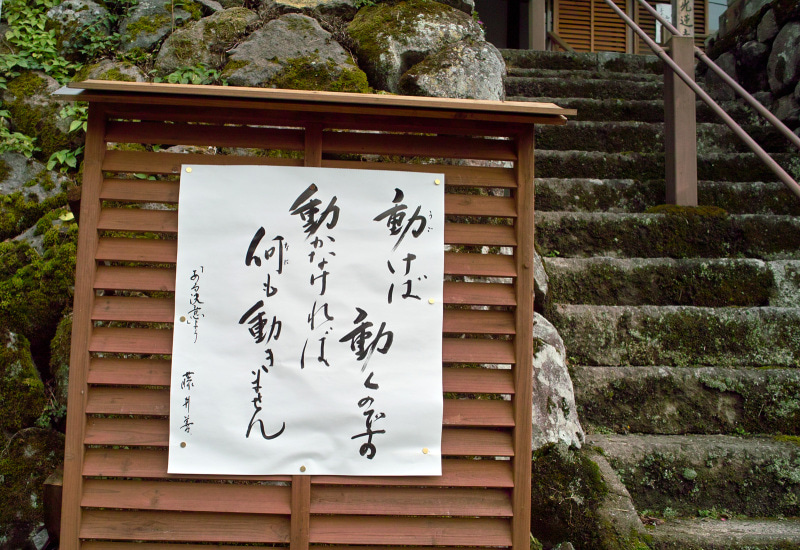 動けば
うご
動くのです
動かなければ
何も動きません
なに
藤井善